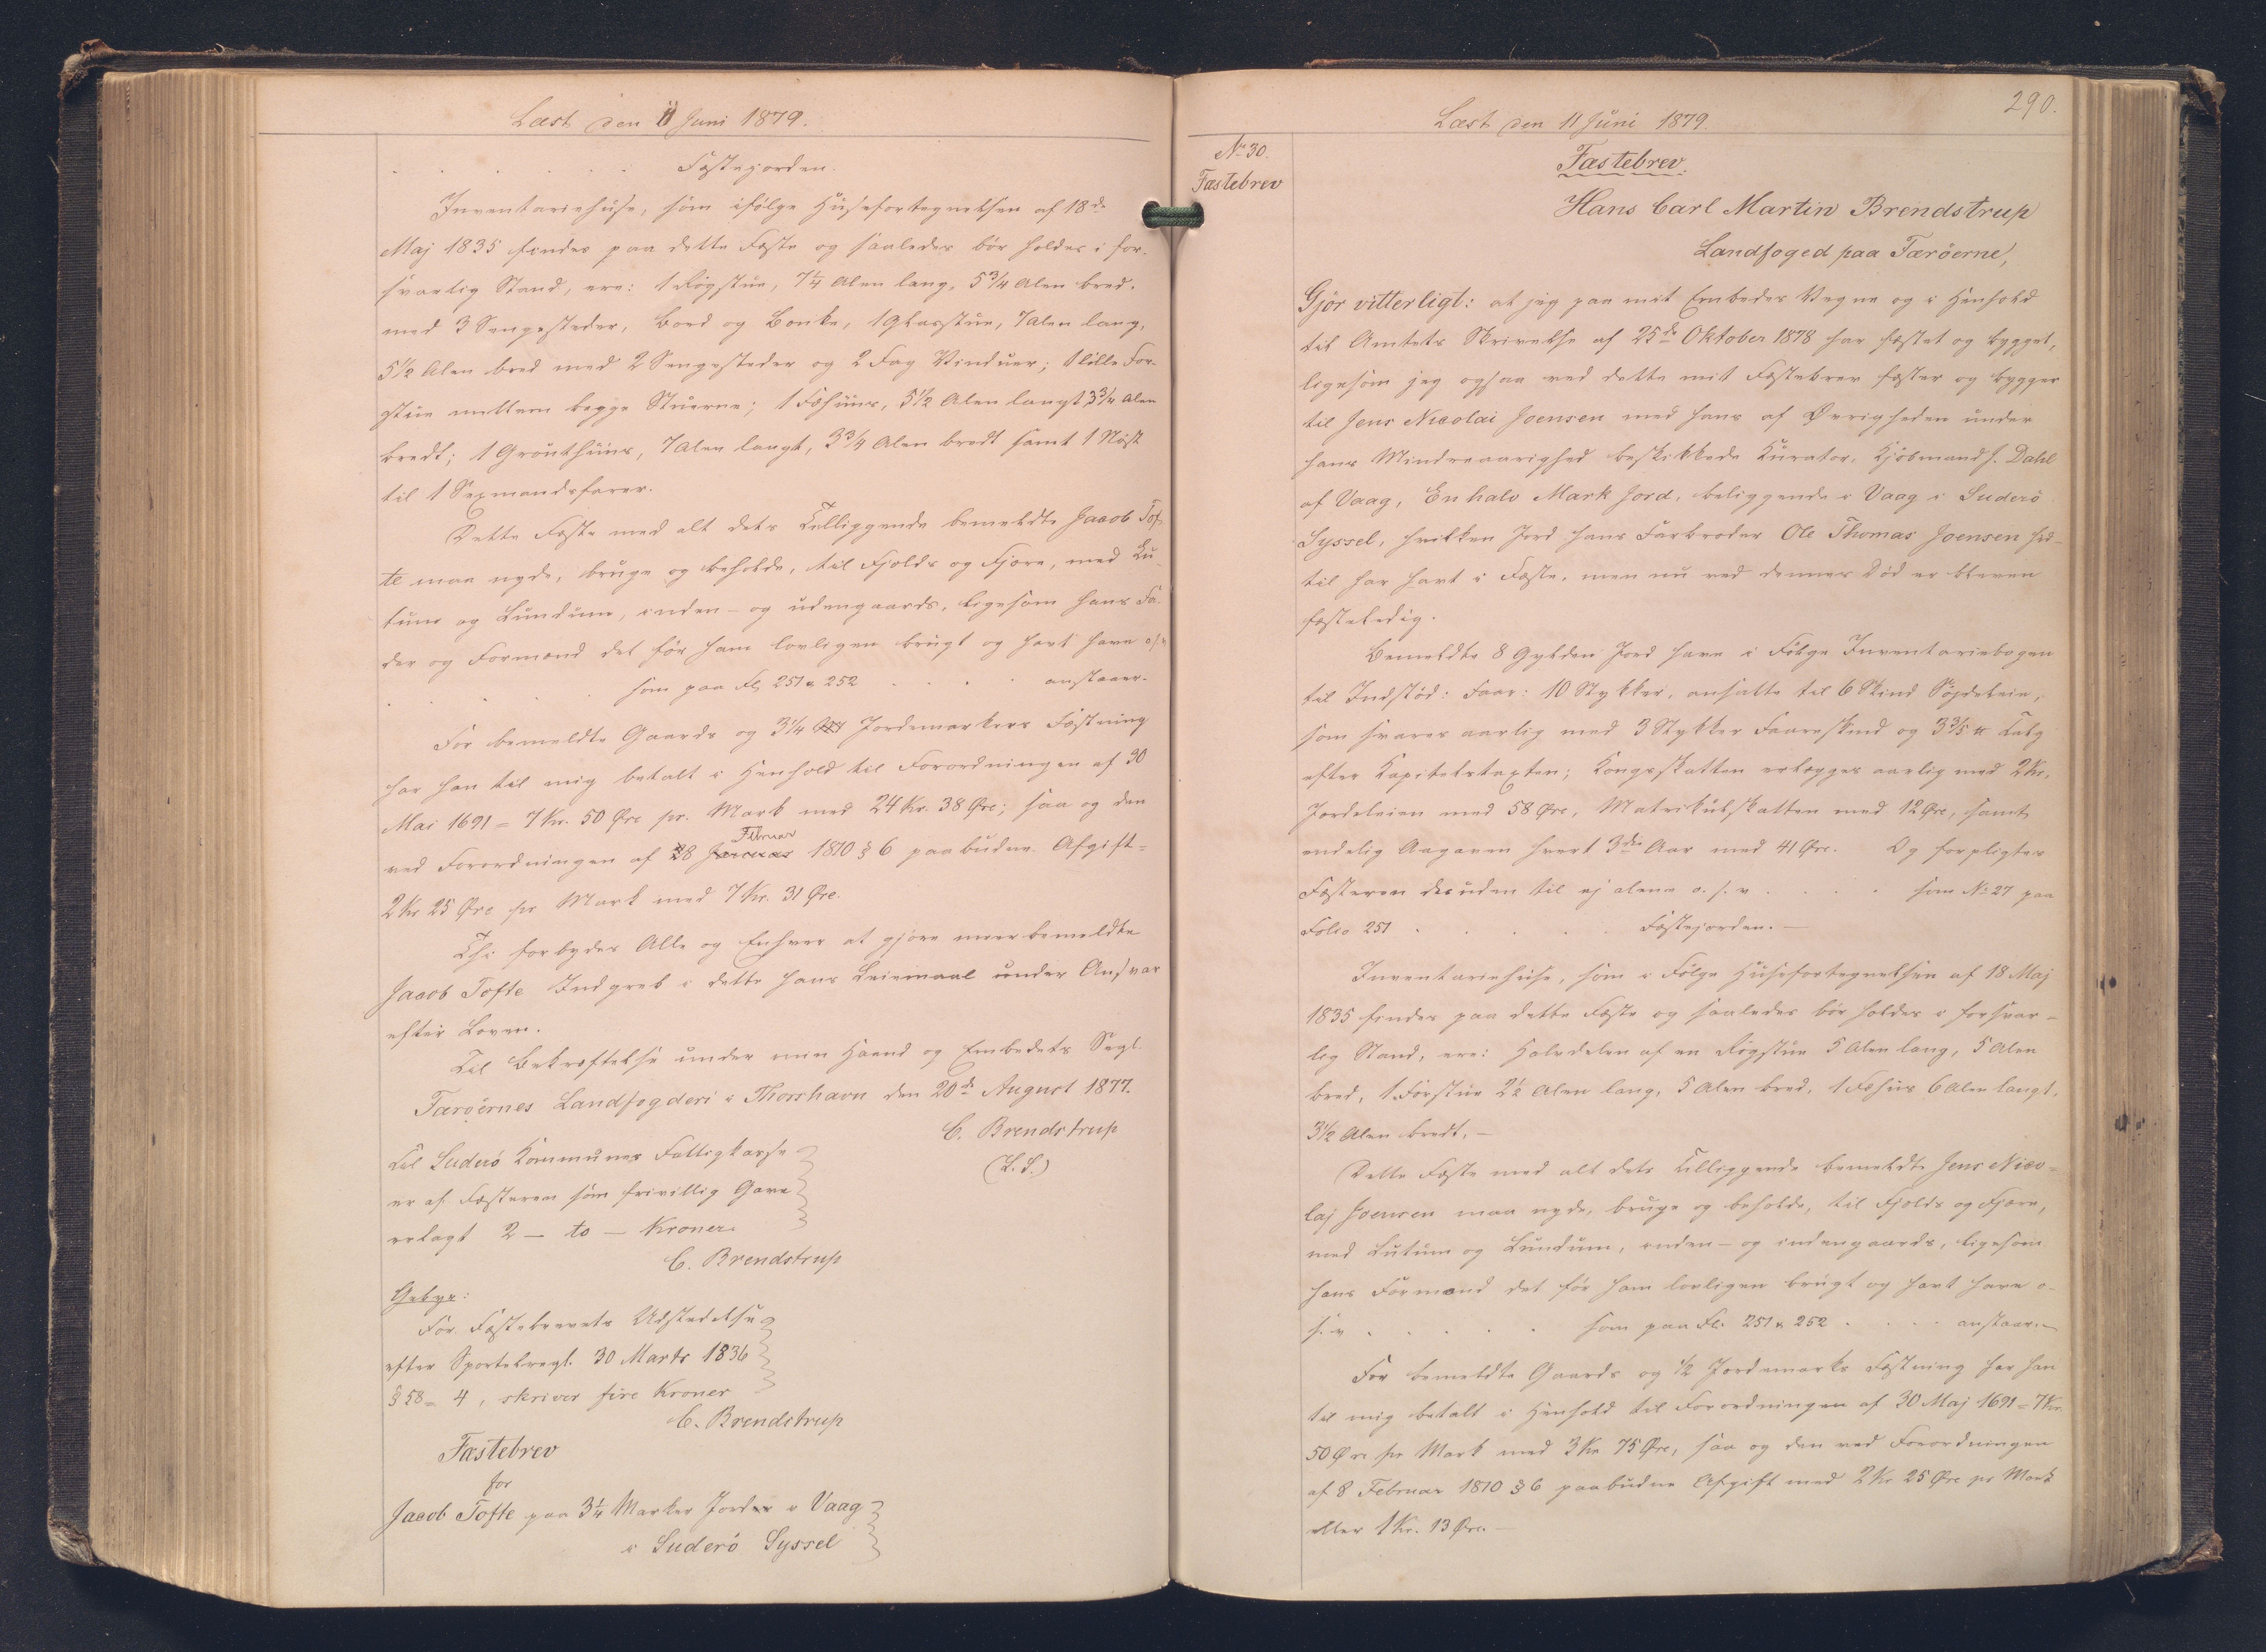 Læst den 11 Juni 1879.
. . . . . . Fæstejorden.
Inventariehuse, som ifølge Husefortegnelsen af 18de
Maj 1835 findes paa dette Fæste og saaledes bør holdes i for-
svarlig Stand, ere: 1 Røgstue, 7 1/4 Alen lang, 5 3/4 Alen bred,
med 3 Sengesteder, Bord og Bænke, 1 Glasstue, 7 Alen lang,
5 1/2 Alen bred med 2 Sengesteder og 2 Fag Vinduer; 1 lille For-
stue mellem begge Stuerne; 1 Fæhuus, 5 1/2 Alen langt 3 3/4 Alen
bredt; 1 Grønthuus, 7 Alen langt, 3 3/4 Alen bredt samt 1 Nøst
til 1 Sexmandsfarer.
Dette Fæste med alt dets Tilliggende bemeldte Jacob Tof-
te maa nyde, bruge og beholde, til Fjelds og Fjære, med Lu-
tum og Lundum, inden- og udengaards, ligesom hans Fa-
der og Formænd det før ham lovligen brugt og havt have o/v
. . . som paa Fl. 251 & 252 . . . . anstaaer.
For bemeldte Gaards og 3 1/4 Jordemarkers Fæstning
har han til mig betalt i Henhold til Forordningen af 30
Mai 1691 = 7 Kr. 50 Øre pr. Mark med 24 Kr. 38 Øre; saa og den
Februar
ved Forordningen af 28 Januar 1810 § 6 paabudne Afgift =
2 Kr 25 Øre pr Mark med 7 Kr. 31 Øre.
Thi forbydes Alle og Enhver at gjøre meerbemeldte
Jacob Tofte Indgreb i dette hans Leiemaal under Ansvar
efter Loven.
Til Bekræftelse under min Haand og Embedets Segl.
Færøernes Landfogderi i Thorshavn den 20de August 1877.
C. Brendstrup
(L. S.)
Til Suderø Kommunes Fattigkasse
er af Fæsteren som frivillig Gave
erlagt 2 – to – Kroner.
C. Brendstrup
Gebyr:
For Fæstebrevets Udstedelse
efter Sportelregl. 30 Marts 1836
§ 58 = 4, skriver fire Kroner
C. Brendstrup
Fæstebrev
for
Jacob Tofte paa 3 1/4 Marker Jord i Vaag
i Suderø Syssel
290.
Læst den 11 Juni 1879.
No 30.
Fæstebrev
Fæstebrev.
Hans Carl Martin Brendstrup
Landfoged paa Færøerne,
Gjør vitterligt: at jeg paa mit Embedes Vegne og i Henhold
til Amtets Skrivelse af 25de Oktober 1878 har fæstet og bygget,
ligesom jeg ogsaa ved dette mit Fæstebrev fæster og bygger
til Jens Nicolai Joensen med hans af Øvrigheden under
hans Mindreaarighed beskikkede Kurator, Kjøbmand J. Dahl
af Vaag, En halv Mark Jord, beliggende i Vaag i Suderø
Syssel, hvilken Jord hans Farbroder Ole Thomas Joensen hid-
til har havt i Fæste, men nu ved dennes Død er bleven
fæsteledig.
Bemeldte 8 Gylden Jord have i Følge Inventariebogen
til Indstød: Faar: 10 Stykker, ansatte til 6 Skind Søjdeleie,
som svares aarlig med 3 Stykker Faareskind og 3 3/5 ℔ Talg
efter Kapitelstaxten; Kongsskatten erlægges aarlig med 2 Kr,
Jordeleien med 58 Øre, Matrikulskatten med 12 Øre, samt
endelig Aagaven hvert 3die Aar med 41 Øre. Og forpligtes
Fæsteren desuden til ej alene o. s. v. . . . som No 27 paa
Folio 251 . . . . . Fæstejorden. —
Inventariehuse, som i Følge Husefortegnelsen af 18 Maj
1835 findes paa dette Fæste og saaledes bør holdes i forsvar-
lig Stand, ere: Halvdelen af en Røgstue 5 Alen lang, 5 Alen
bred, 1 Forstue 2 1/2 Alen lang, 5 Alen bred, 1 Fæhus 6 Alen langt,
3 1/2 Alen bredt. —
Dette Fæste med alt dets Tilliggende bemeldte Jens Nico-
laj Joensen maa nyde, bruge og beholde, til Fjelds og Fjære,
med Lutum og Lundum, inden- og udengaards, ligesom
hans Formænd det før ham lovligen brugt og havt have o-
s. v. . . . . . som paa Fl. 251 & 252 . . . . anstaar. —
For bemeldte Gaards og 1/2 Jordemarks Fæstning har han
til mig betalt i Henhold til Forordningen af 30 Maj 1691 = 7 Kr.
50 Øre pr Mark med 3 Kr 75 Øre, saa og den ved Forordningen
af 8 Februar 1810 § 6 paabudne Afgift med 2 Kr 25 Øre pr Mark
eller 1 Kr. 13 Øre. —